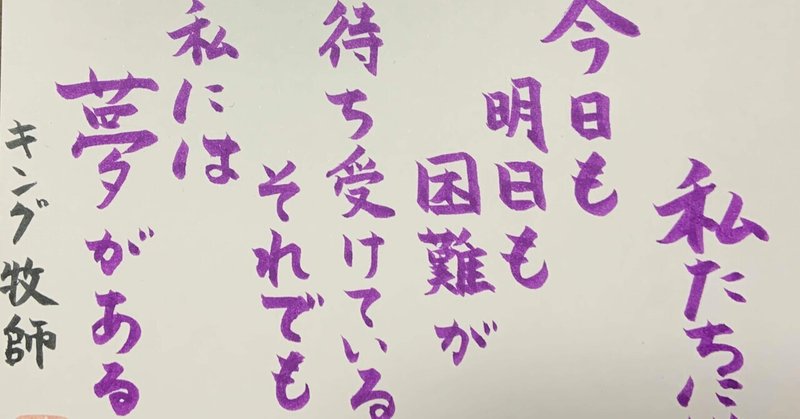 私たちに
今日も
明日も
困難が
待ち受けている
それでも
私には
夢がある
キング牧師